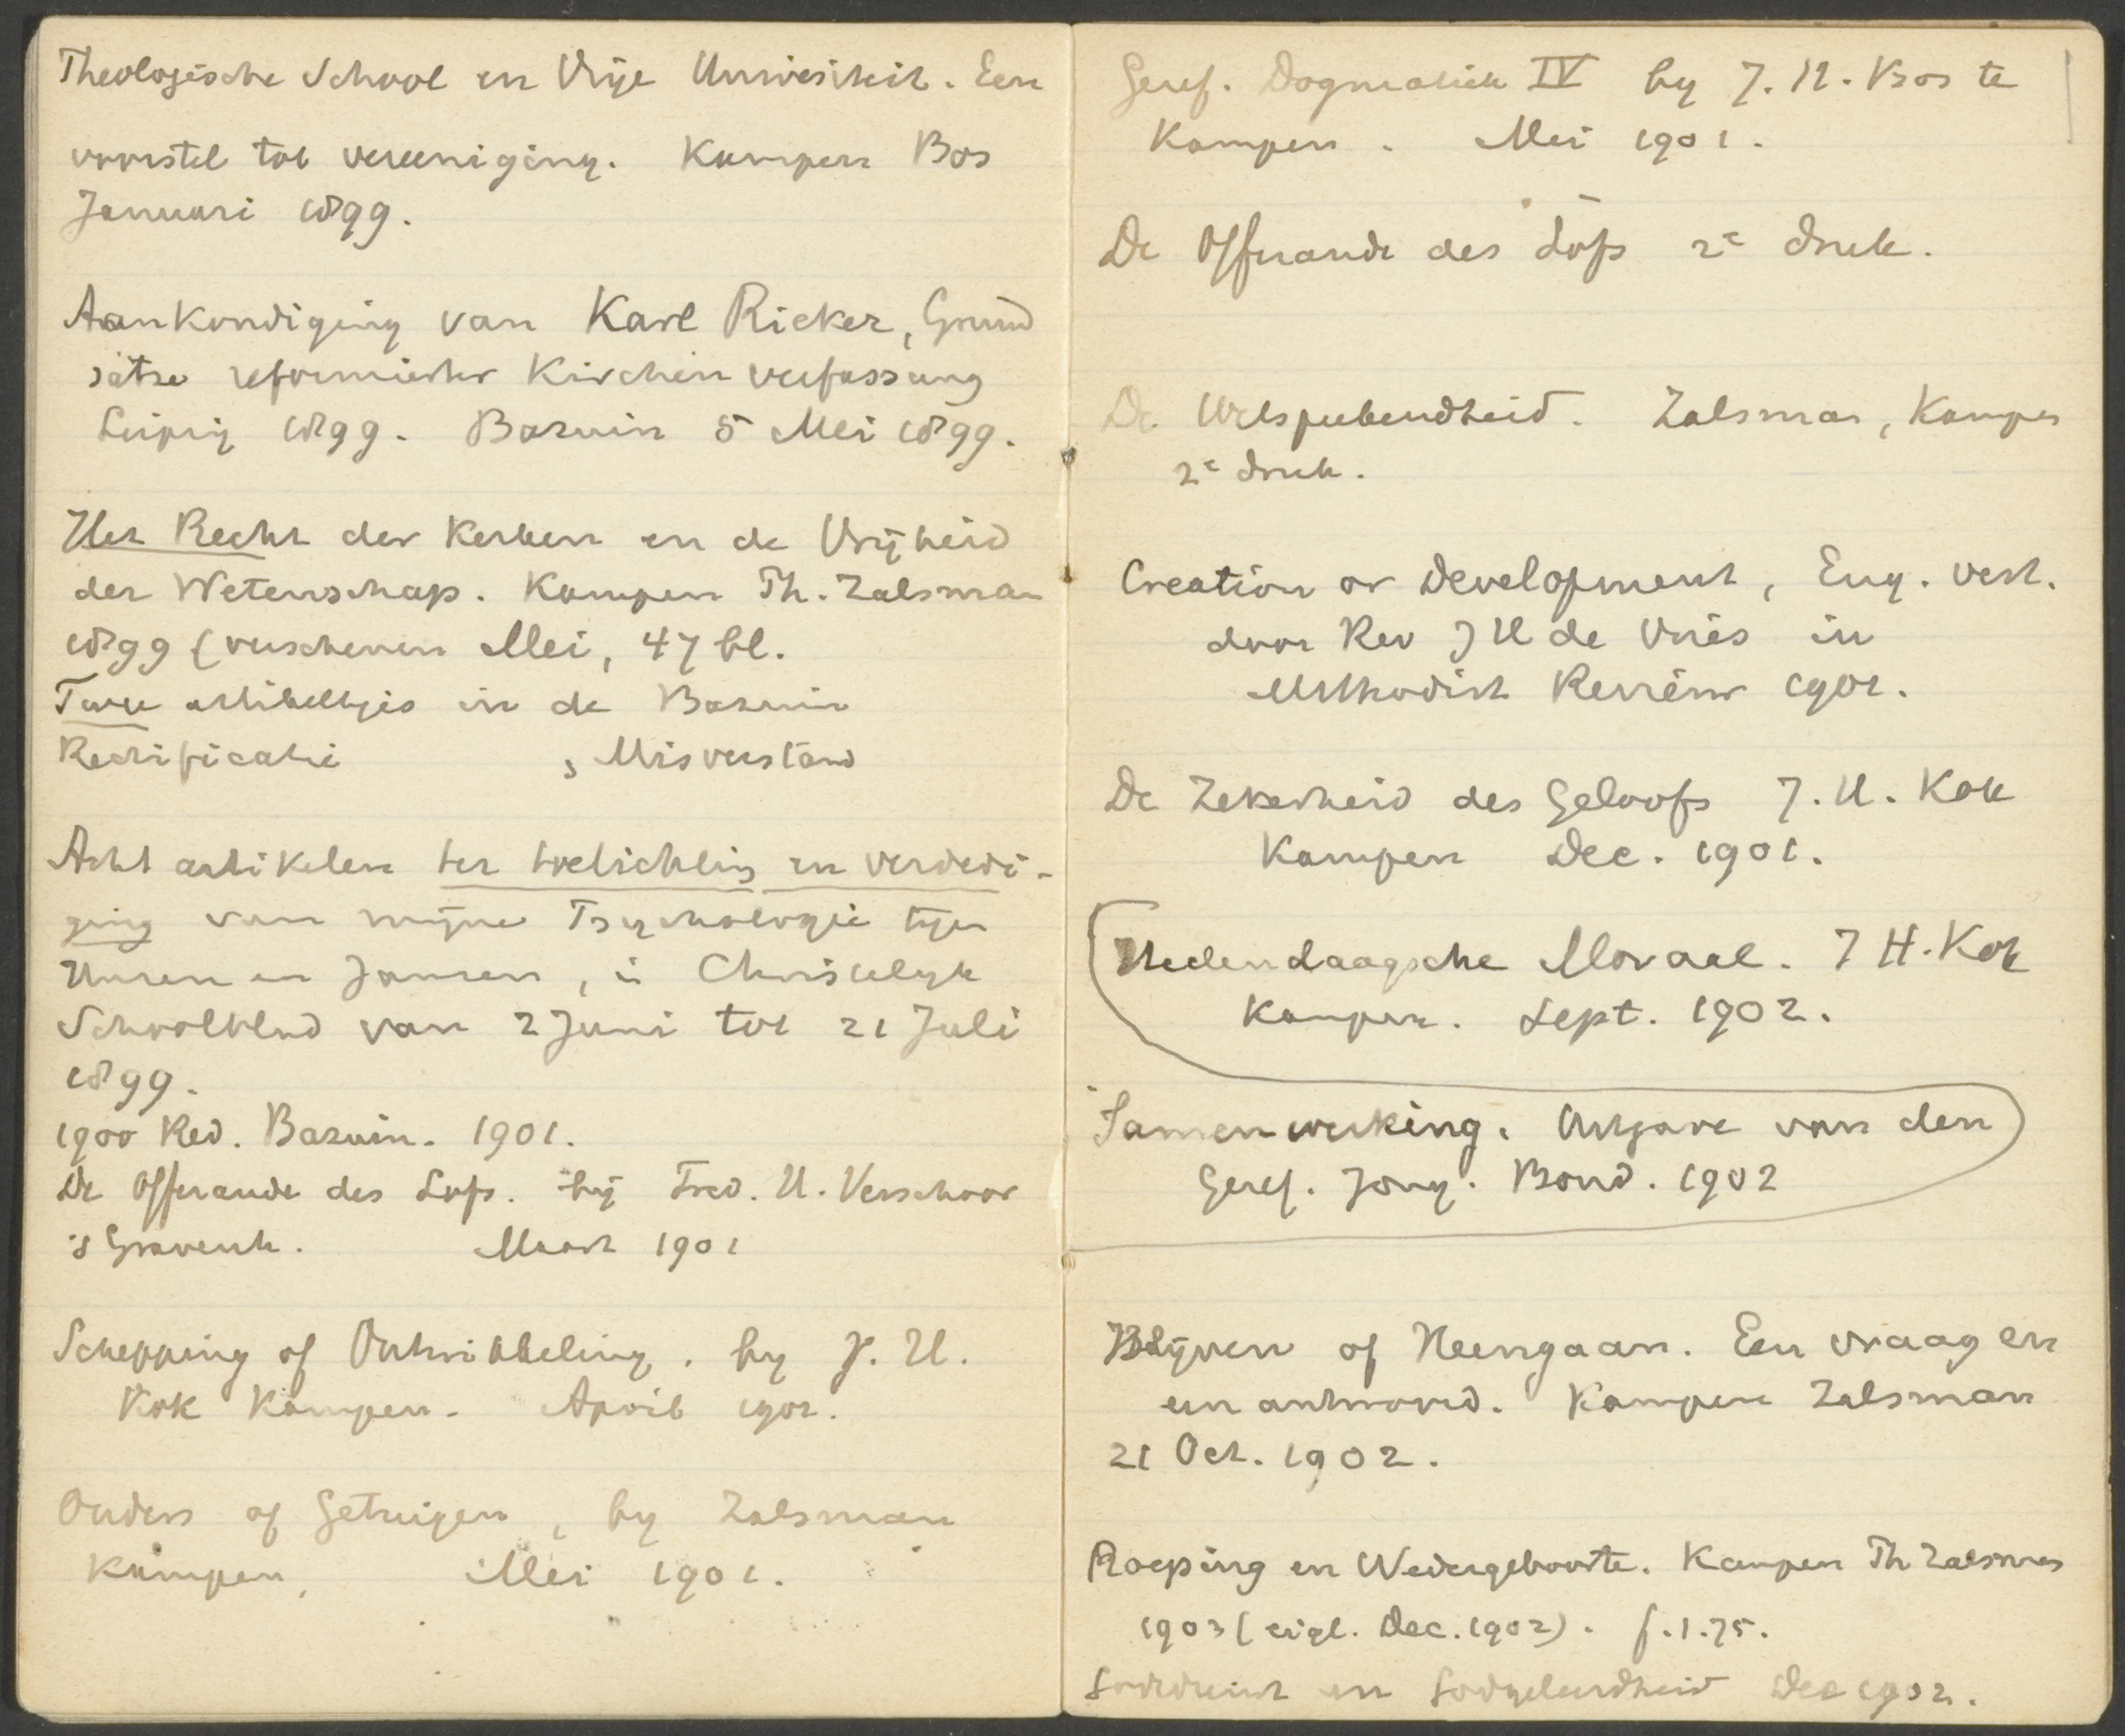 Theologische School en Vrije Universiteit. Een
voorstel tot vereeniging. Kampen Bos
Januari 1899.
Aankondiging van Karl Rieker, Grund
sätze reformierter Kirchenverfassung
Leipzig 1899. Bazuin 5 Mei 1899.
Het Recht der Kerken en de Vrijheid
der Wetenschap. Kampen Th. Zalsman
1899 (verschenen Mei, 47 bl.
Twee artikeltjes in de Bazuin
Rectificatie , Misverstand
Acht artikelen ter toelichting en verdedi-
ging van mijne Psychologie tegen
Unren en Jansen, in Christelijk
Schoolblad van 2 Juni tot 21 Juli
1899.
1900 Red. Bazuin. 1901.
De Offerande des Lofs. bij Fred. H. Verschoor
's Gravenh. Maart 1901
Schepping of Ontwikkeling. by J. H.
Kok Kampen. April 1901.
Ouders of Getuigen, by Zalsman
Kampen, Mei 1901.
Geref. Dogmatiek IV by J. H. Bos te
Kampen. Mei 1901.
De Offerande des Lofs 2e druk.
De Welsprekendheid. Zalsman, Kampen
2e druk.
Creation or Development, Eng. vert.
door Rev J H de Vries in
Methodist Review 1901.
De Zekerheid des Geloofs J. H. Kok
Kampen Dec. 1901.
Hedendaagsche Moraal. J H. Kok
Kampen. Sept. 1902.
Samenwerking. Uitgave van den
Geref. Jong. Bond. 1902
Blijven of Heengaan. Een vraag en
een antwoord. Kampen Zalsman
21 Oct. 1902.
Roeping en Wedergeboorte. Kampen Th Zalsman
1903 (eigl. Dec. 1902). f. 1.75.
Godsdienst en Godgeleerdheid Dec 1902.